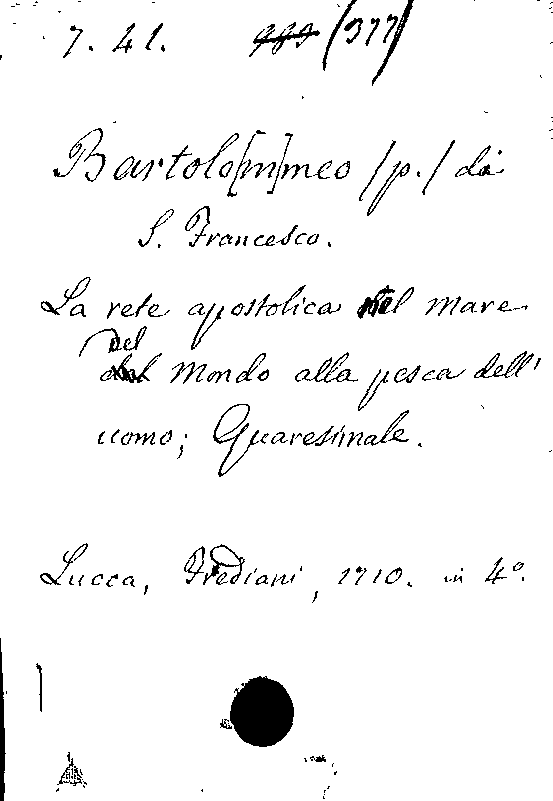 7. 41. 989 (377)
Bartolo[m]meo /p./ da
S. Francesco.
La rete apostolica nel mare
del
mondo alla pesca dell'
uomo; Quaresimale.
Lucca, Frediani, 1710. in 4º.